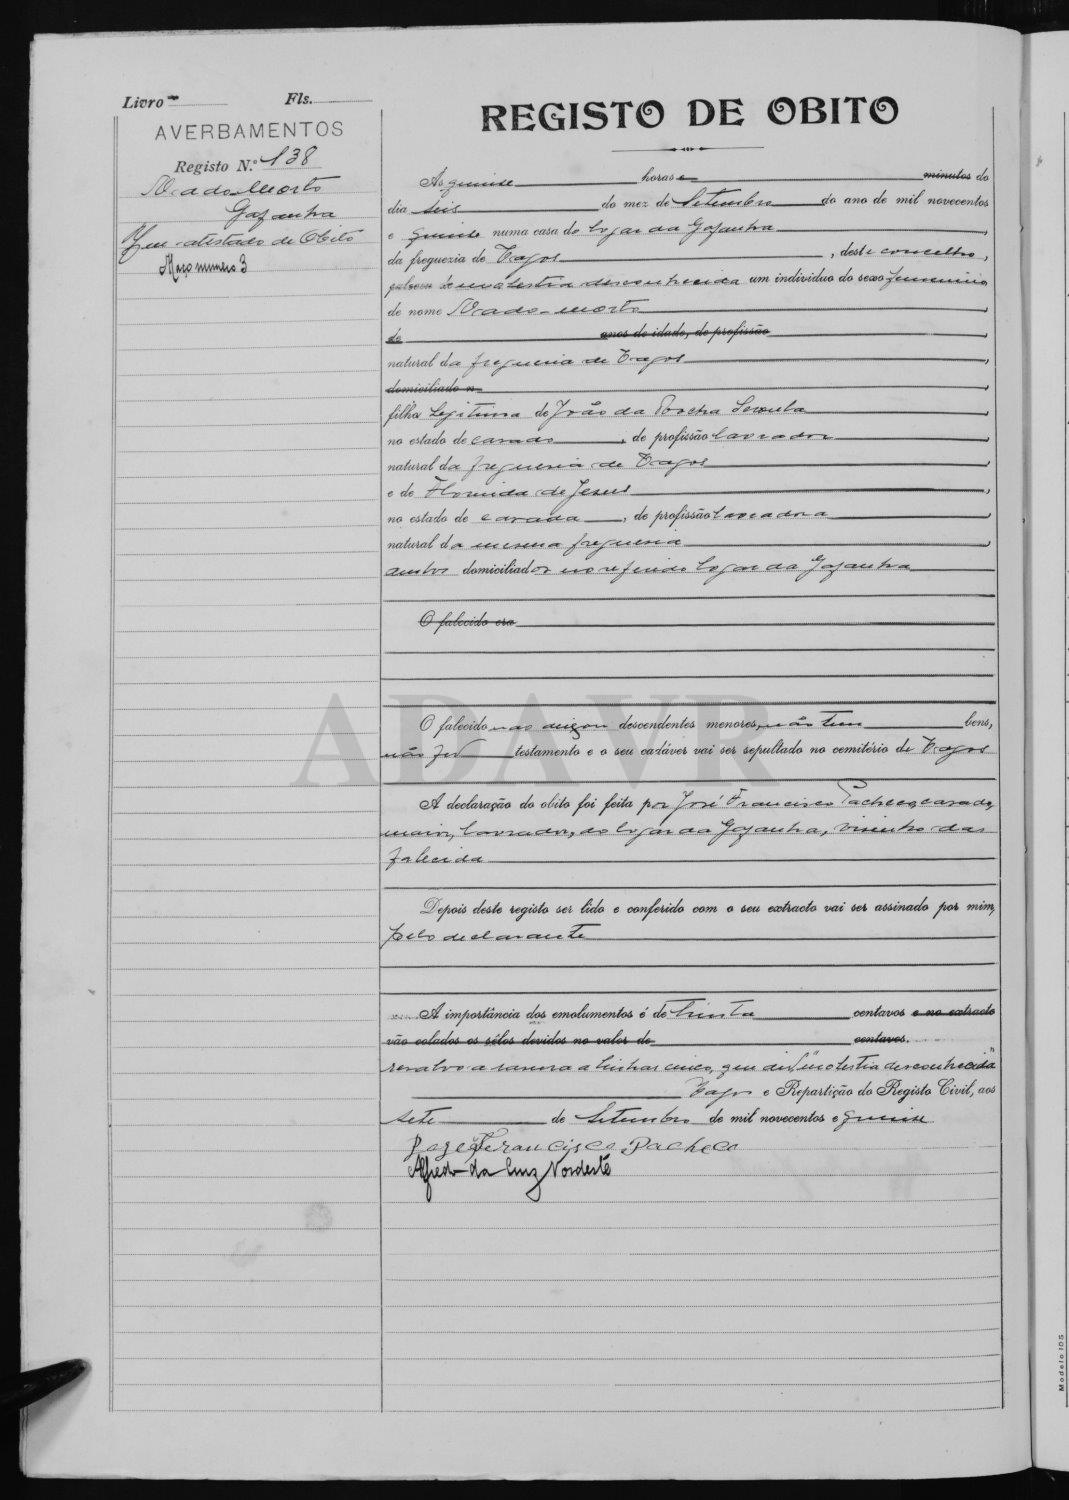 Livro Fls.
AVERBAMENTOS
Registo N.º 138
Nado-Morto
Gafanha
Tem atestado de Obito
Maço numero 3
REGISTO DE OBITO
As quinse horas e minutos do
dia seis do mez de Setembro do ano de mil novecentos
e quinse numa casa do logar da Gafanha,
da freguezia de Vagos, deste concelho,
faleceu de molestia desconhecida um individuo do sexo femenino
de nome Nado-morto,
de anos de idade, de profissão
natural da freguesia de Vagos,
domiciliado n
filha legitima de João da Rocha
no estado de casado, de profissão lavrador
natural da freguesia de Vagos
e de Florinda de Jesus,
no estado de casada, de profissão lavradora
natural da mesma freguesia
ambos domiciliados no referido logar da Gafanha
O falecido era
ADAVR
O falecido nao deixou descendentes menores, não tem bens,
não fez testamento e o seu cadáver vai ser sepultado no cemitério de Vagos
A declaração do obito foi feita por José Francisco Pacheco, casado,
maior, lavrador, do logar da Gafanha, visinho da
falecida
Depois deste registo ser lido e conferido com o seu extracto vai ser assinado por mim,
pelo declarante
A importância dos emolumentos é de trinta centavos e no extracto
vão colados os sêlos devidos no valor de centavos.
resalvo a rasura a linhas cinco, que diz "molestia desconhecida"
Vagos e Repartição do Registo Civil, aos
sete de Setembro de mil novecentos e quinse
José Francisco Pacheco
Alfredo da Cruz Nordeste
Modelo 105